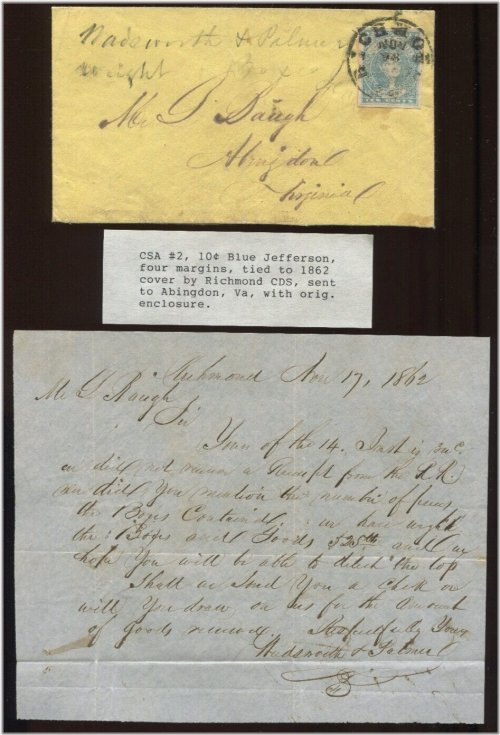 Wadsworth & Palmer
weight Boxes
RICHMOND
NOV
TEN CENTS
Mr D Baugh
Abingdon
Virginia
CSA #2, 10¢ Blue Jefferson,
four margins, tied to 1862
cover by Richmond CDS, sent
to Abingdon, Va, with orig.
enclosure.
Richmond Nov 17, 1862
Mr D Baugh
Sir
Yours of the 14. Inst is rec.
we did not receive a Receipt from the R.R.
nor did You mention the number of pieces
the Boxes Contained. we have weighed
the Boxes and Goods 528 lb and we
hope You will be able to detect the top
Shall we Send You a check or
will You draw on us for the amount
of goods received. Respectfully Yours
Wadsworth & Palmer